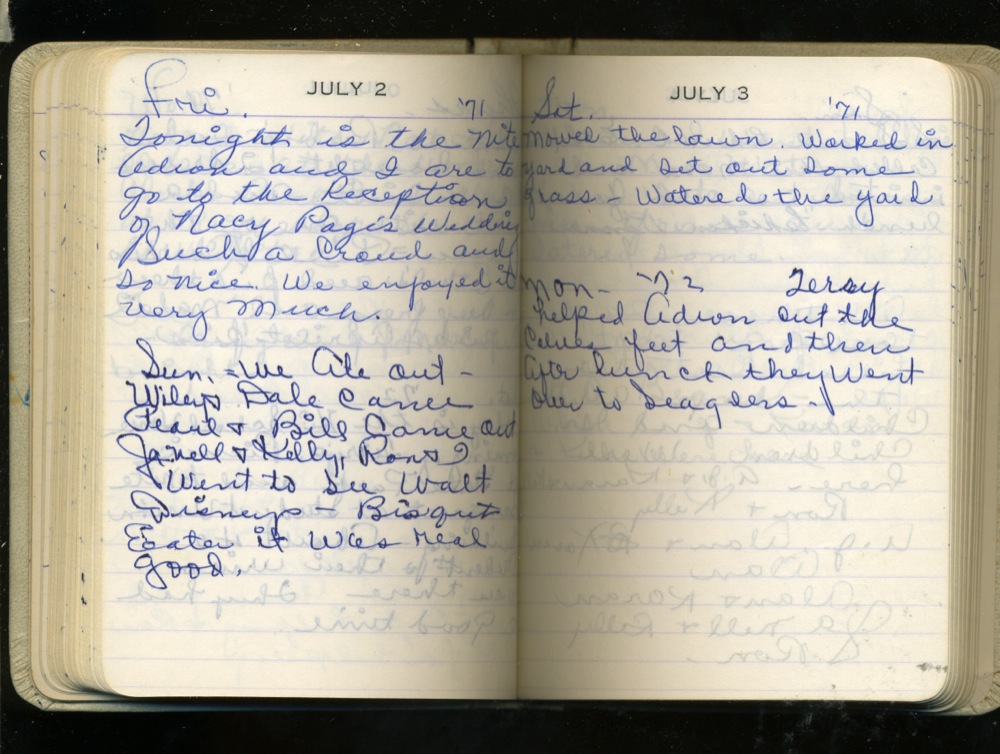 JULY 2
Fri. '71
Tonight is the Nite
Adron and I are to
go to the Reception
of Nacy Pagis Wedding
Such a Croud and
so nice. We enjoyed it
very Much.
Sun. - we Ate out -
Wileys Dale Came
Pearl & Bill Came out
Janell & Kelly, Rons
Went to See Walt
Disneys - Bisqut
Eater it Was real
good.
JULY 3
Sat. '71
Mowed the lawn. Worked in
yard and set out some
grass - Watered the yard
Mon - '72 Jersy
helped Adron cut the
Calves feet and then
After lunch they Went
over to Seaglers -